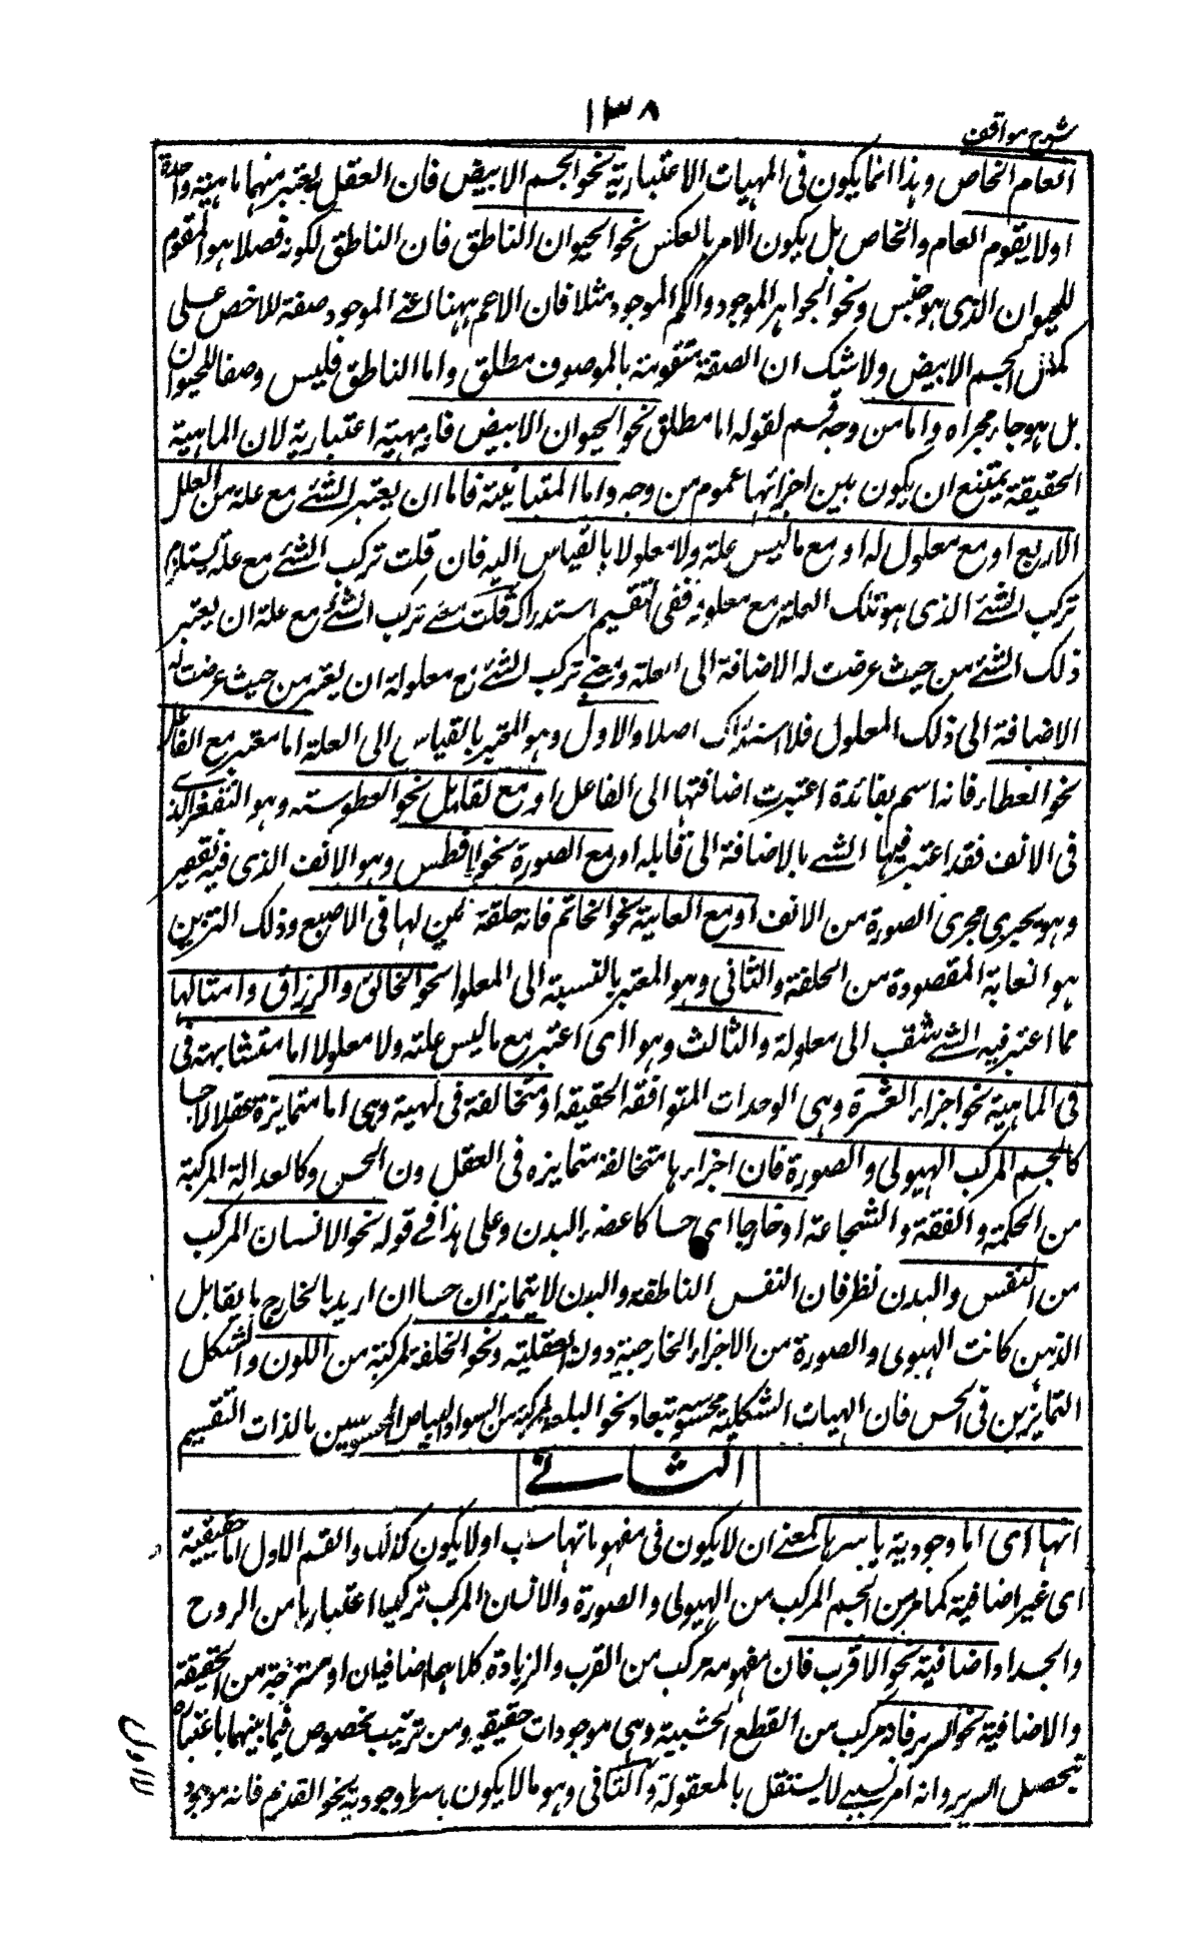 ١٣٨
شرح مواقف
العام الخاص وہذا انما یکون فی المہیات الاعتباریة نحو الجسم الابیض فان العقل یعتبر منہما ماہیة واحدة
اولا یقوم العام والخاص بل یکون الامر بالعکس نحو الحیوان الناطق فان الناطق لکونہ فصلا ہو المقوم
للحیوان الذی ہو جنس ونحو الجواہر الموجود والکم الموجود مثلا فان الاعم ہہنا اعنے الموجود صفة للاخص علی
کما فی الجسم الابیض ولا شک ان الصفة متقومة بالموصوف مطلق واما الناطق فلیس وصفا للحیوان
بل ہو جار مجراہ واما من وجہ قسم لقولہ اما مطلق نحو الحیوان الابیض فانہ مہیة اعتباریة لان الماہیة
الحقیقة یمتنع ان یکون بین اجزائہا عموم من وجہ واما المتباینة فاما ان یعتبر الشئے مع علة من العلل
الاربع او مع معلول لہ او مع ما لیس علة ولا معلولا بالقیاس الیہ فان قلت ترکب الشئے مع علة یستلزم
ترکب الشئے الذی ہو تلک العلة مع معلولہ ففی التقسیم استدراک قلت معنے ترکب الشئے مع علة ان یعتبر
ذلک الشئے من حیث عرضت لہ الاضافة الی العلة ومعنے ترکب الشئے مع معلولہ ان یعتبر من حیث عرضت لہ
الاضافة الی ذلک المعلول فلا استدراک اصلا والاول وہو المعتبر بالقیاس الی العلة اما معتبر مع الفاعل
نحو العطاء فانہ اسم بفائدة اعتبرت اضافتہا الی الفاعل او مع القابل نحو الفطوسة وہو التقعر الذی
فی الانف فقد اعتبر فیہا الشئے بالاضافة الی قابلہ او مع الصورة نحو الافطس وہو الانف الذی فیہ تقعیر
وہو یجری مجری الصورة من الانف او مع الغایة نحو الخاتم فانہ حلقة یتزین بہا فی الاصبع وذلک التزین
ہو الغایة المقصودة من الحلقة والثانی وہو المعتبر بالنسبة الی المعلول نحو الخالق والرزاق وامثالہا
مما اعتبر فیہ الشئے منتسب الی معلولہ والثالث وہو ای اعتبر مع ما لیس علة ولا معلولا اما متشابہة فی
فی الماہیة نحو اجزاء العشرة وہی الوحدات المتوافقة الحقیقة او متخالفة فی المہیة وہی اما متمایزة عقلا لا حسا
کالجسم المرکب الہیولی والصورة فان اجزاءہا متخالفة متمایزہ فی العقل دون الحس وکالعدالة المرکبة
من الحکمة والعفة والشجاعة او خارجا ای حسا کاعضاء البدن وعلی ہذا فے قولہ نحو الانسان المرکب
من النفس والبدن نظر فان النفس الناطقة والبدن لا یتمایزان حسا ان ارید بالخارج ما یقابل
الذہن کانت الہیولی والصورة من الاجزاء الخارجیة دون العقلیة ونحو الخلقة المرکبة من اللون والشکل
المتمایزین فی الحس فان الہیات الشکلیة محسوسة تبعا ونحو البلقة المرکبة من السواد والبیاض المحسوسین بالذات التقسیم
الثـانـے
انہا ای اما وجودیة باسرہا بمعنے ان لا یکون فی مفہوماتہا سلب اولا یکون کذلک والقسم الاول اما حقیقیة
ای غیر اضافیة کما مر من الجسم المرکب من الہیولی والصورة والانسان المرکب ترکیبا اعتباریا من الروح
والجسد او اضافیة نحو الاقرب فان مفہومہ مرکب من القرب والزیادة کلاہما اضافیان او ممتزجة من الحقیقیة
والاضافیة نحو السریر فانہ مرکب من القطع الخشبیة وہی موجودات حقیقیة ومن ترتیب مخصوص فیما بینہا باعتبارہ
یتحصل السریر وانہ امر نسبے لا یستقل بالمعقولة والثانی وہو ما لا یکون باسرہا وجودیة نحو القدیم فانہ موجود
لا اول